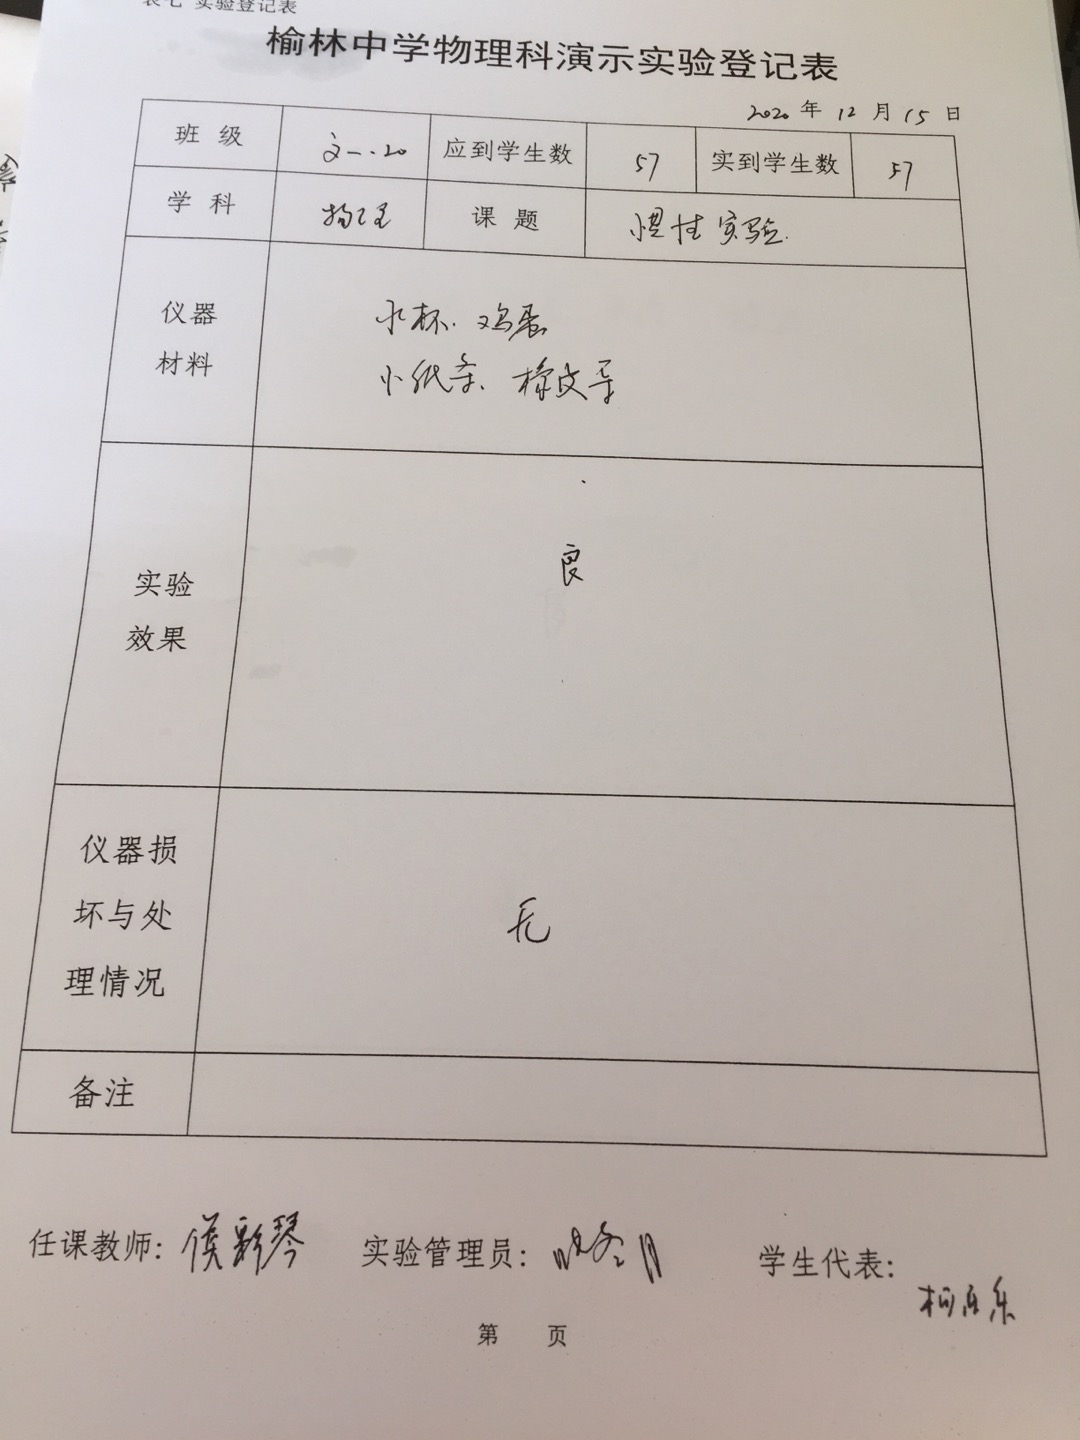 表七 实验登记表
榆林中学物理科演示实验登记表
2020 年 12 月 15 日
班 级 文一.20 应到学生数 57 实到学生数 57
学 科 物理 课 题 惯性实验.
仪器
材料
水杯、鸡蛋
小纸条、橡皮等
实验
效果
良
仪器损
坏与处
理情况
无
备注
任课教师: 侯彩琴 实验管理员: 学生代表:
第 页